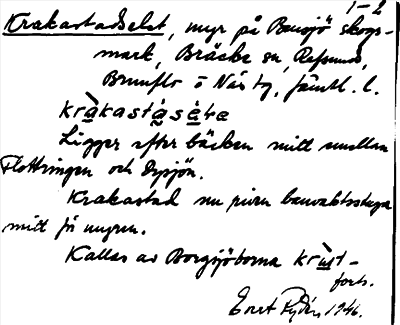 1-2
Krakastadselet, myr på Bensjö skogs-
mark, Bräcke sn, Refsunds,
Brunflo o Näs tg, Jämtl. l.
kràkastásèḷre
Ligger efter bäcken mitt emellan
Flottringen och Dysjön.
Krakastad nu riven banvaktsstuga
mitt på myren.
Kallas av Borgsjöborna krast-
forts.
Ernst Rydén 1946.